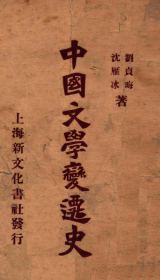 劉貞晦
沈雁冰
著
中國文學變遷史
上海新文化書社發行